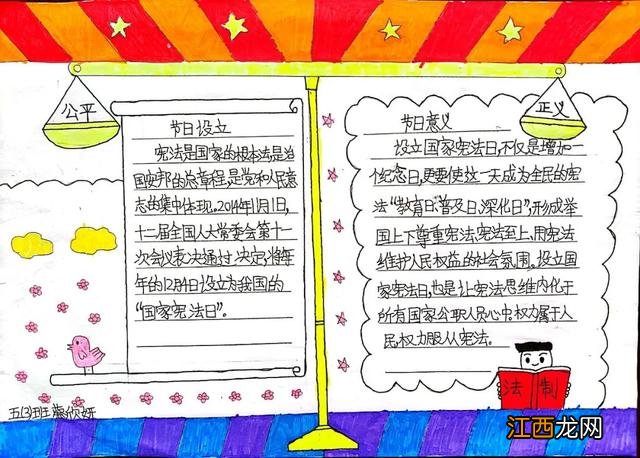 公平
节日设立
宪法是国家的根本法是治
国安邦的总章程,是党和人民意
志的集中体现。2014年11月1日,
十二届全国人大常委会第十一
次会议表决通过决定,将每
年的12月4日设立为我国的
"国家宪法日"。
正义
节日意义
设立国家宪法日,不仅是增加一
个纪念日,更要使这一天成为全民的宪
法"教育日、普及日、深化日",形成举
国上下尊重宪法、宪法至上、用宪法
维护人民权益的社会氛围。设立国
家宪法日,也是让宪法思维内化于
所有国家公职人员心中,权力属于人
民,权力服从宪法。
法制
五(3)班 欣妍
江西龙网